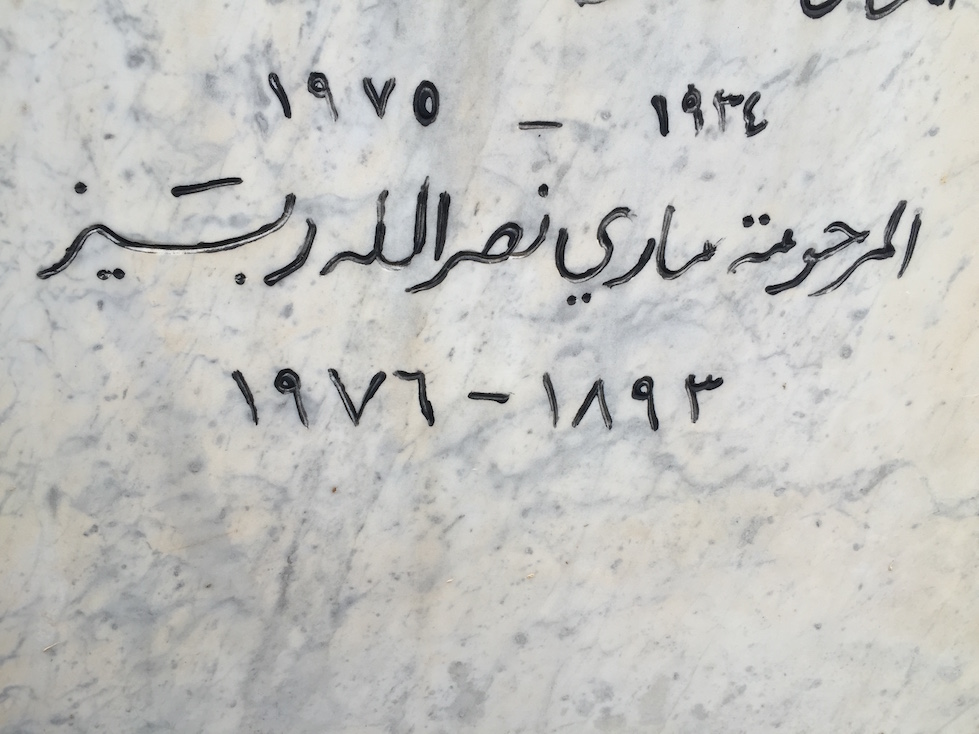 ١٩٣٤ – ١٩٧٥
المرحومة ماري نصر الله ربيز
١٨٩٣ – ١٩٧٦